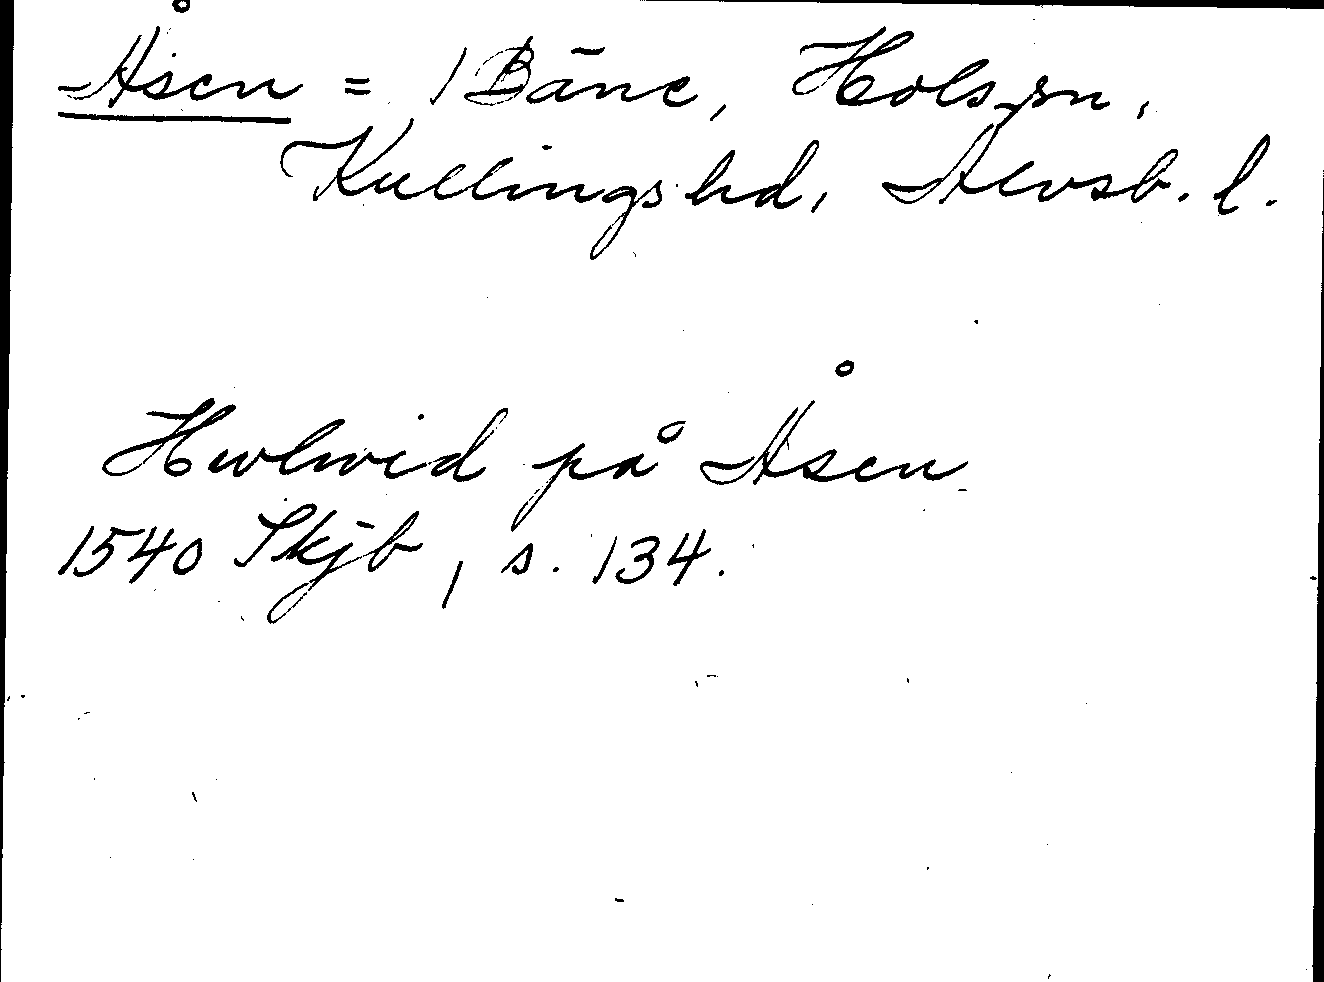 Åsen = 1 Bäne, Hols sn,
Kullings hd, Älvsb. l.
Hwlwid på Åsen
1540 Skjb, s. 134.